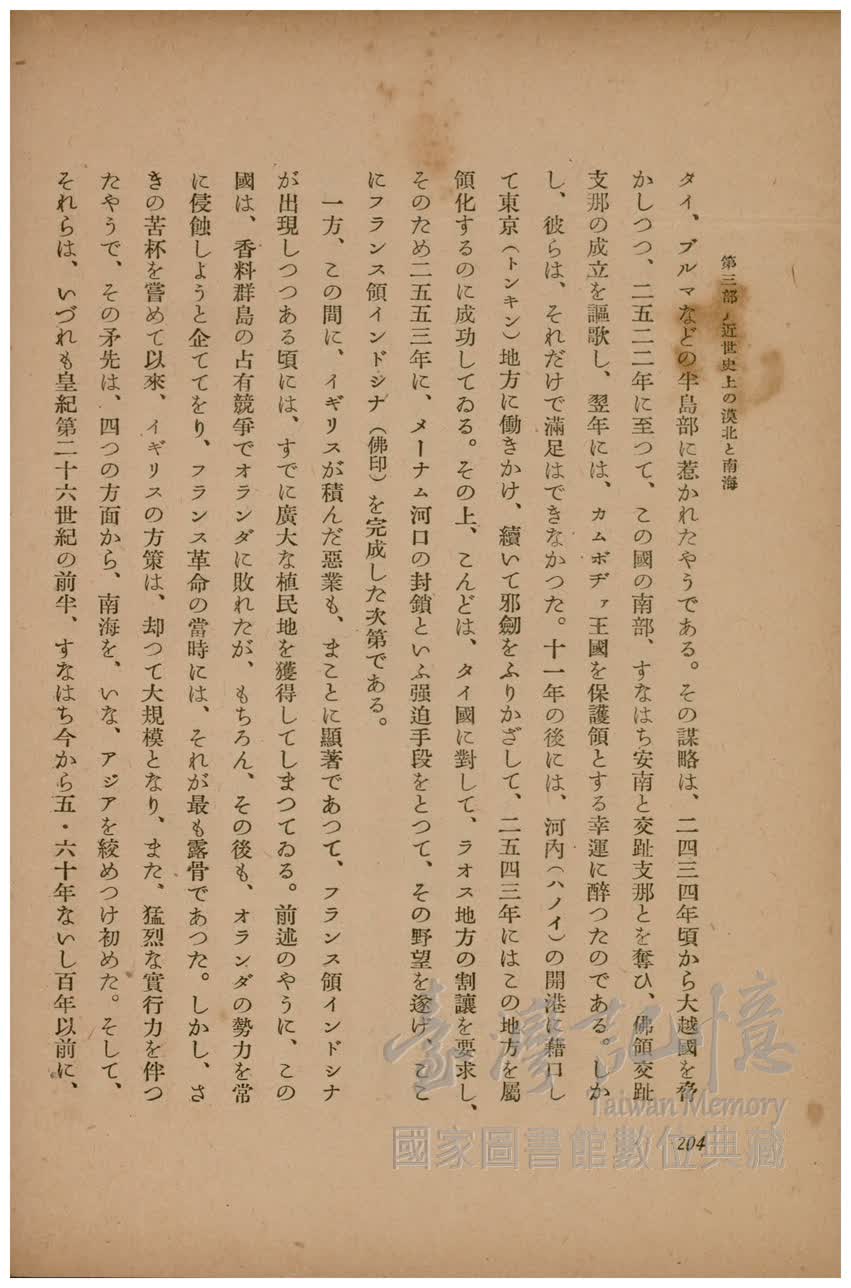 第三部 近世史上の漠北と南海
タイ、ブルマなどの半島部に惹かれたやうである。その謀略は、二四三四年頃から大越國を脅
かしつつ、二五二二年に至つて、この國の南部、すなはち安南と交趾支那とを奪ひ、佛領交趾
支那の成立を謳歌し、翌年には、カムボヂァ王國を保護領とする幸運に醉つたのである。しか
し、彼らは、それだけで滿足はできなかつた。十一年の後には、河內(ハノイ)の開港に藉口し
て東京(トンキン)地方に働きかけ、續いて邪劒をふりかざして、二五四三年にはこの地方を屬
領化するのに成功してゐる。その上、こんどは、タイ國に對して、ラオス地方の割讓を要求し、
そのため二五五三年に、メーナム河口の封鎖といふ强迫手段をとつて、その野望を遂げ、ここ
にフランス領インドシナ(佛印)を完成した次第である。
一方、この間に、イギリスが積んだ惡業も、まことに顯著であつて、フランス領インドシナ
が出現しつつある頃には、すでに廣大な植民地を獲得してしまつてゐる。前述のやうに、この
國は、香料群島の占有競爭でオランダに敗れたが、もちろん、その後も、オランダの勢力を常
に侵蝕しようと企ててをり、フランス革命の當時には、それが最も露骨であつた。しかし、さ
きの苦杯を嘗めて以來、イギリスの方策は、却つて大規模となり、また、猛烈な實行力を伴つ
たやうで、その矛先は、四つの方面から、南海を、いな、アジアを絞めつけ初めた。そして、
それらは、いづれも皇紀第二十六世紀の前半、すなはち今から五・六十年ないし百年以前に、
204
臺灣記憶
Taiwan Memory
國家圖書館數位典藏